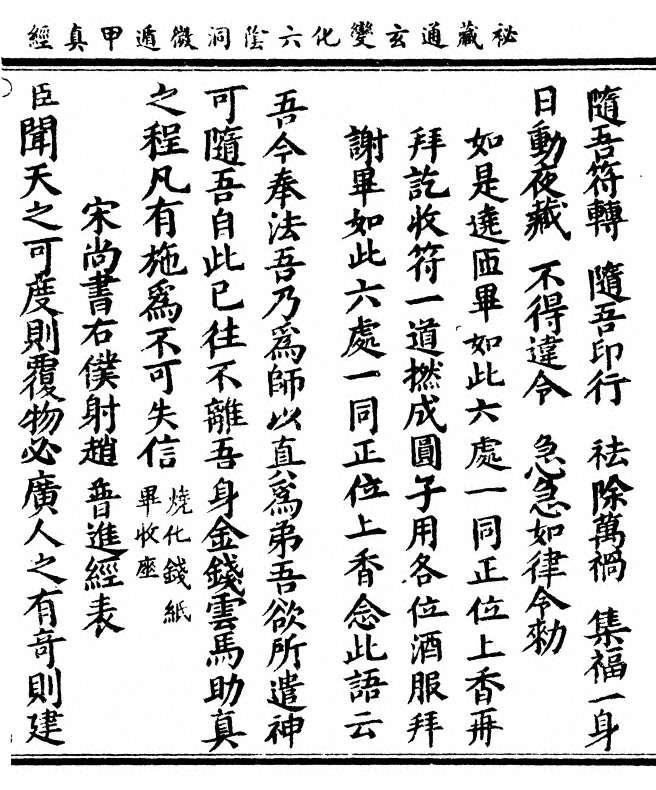 祕藏通玄變化六陰洞微遁甲真經
隨吾符轉　隨吾印行　祛除萬禍　集福一身
日動夜藏　不得違令　急急如律令勑
如是遶匝畢如此六處一同正位上香再
拜訖收符一道撚成圓子用各位酒服拜
謝畢如此六處一同正位上香念此語云
吾今奉法吾乃為師以直為弟吾欲所遣神
可隨吾自此已往不離吾身金錢雲馬助真
之程凡有施為不可失信燒化錢紙
畢收座
宋尚書右僕射趙　普進經表
臣聞天之可度則覆物必廣人之有奇則建